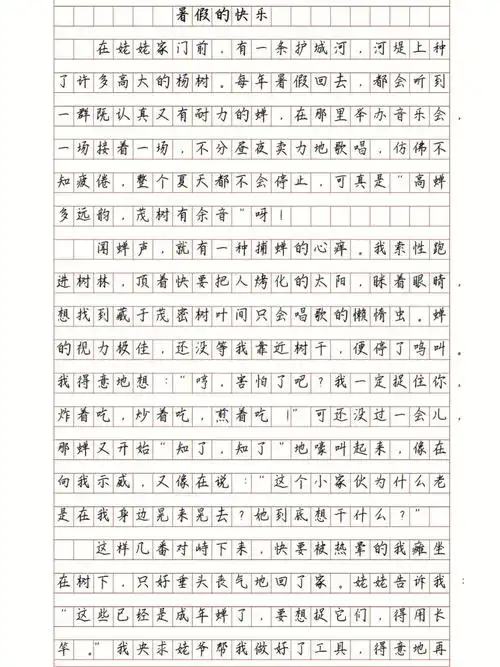 暑假的快乐
在姥姥家门前，有一条护城河，河堤上种
了许多高大的杨树。每年暑假回去，都会听到
一群既认真又有耐力的蝉，在那里举办音乐会，
一场接着一场，不分昼夜卖力地歌唱，仿佛不
知疲倦，整个夏天都不会停止，可真是“高蝉
多远韵，茂树有余音”呀！
闻蝉声，就有一种捕蝉的心痒。我索性跑
进树林，顶着快要把人烤化的太阳，眯着眼睛，
想找到藏于茂密树叶间只会唱歌的懒惰虫。蝉
的视力极佳，还没等我靠近树干，便停了鸣叫。
我得意地想：“哼，害怕了吧？我一定捉住你，
炸着吃，炒着吃，煎着吃！”可还没过一会儿，
那蝉又开始“知了，知了”地嚎叫起来，像在
向我示威，又像在说：“这个小家伙为什么老
是在我身边晃来晃去？她到底想干什么？”
这样几番对峙下来，快要被热晕的我瘫坐
在树下，只好垂头丧气地回了家。姥姥告诉我：
“这些已经是成年蝉了，要想捉它们，得用长
竿。”我央求姥爷帮我做好了工具，得意地再